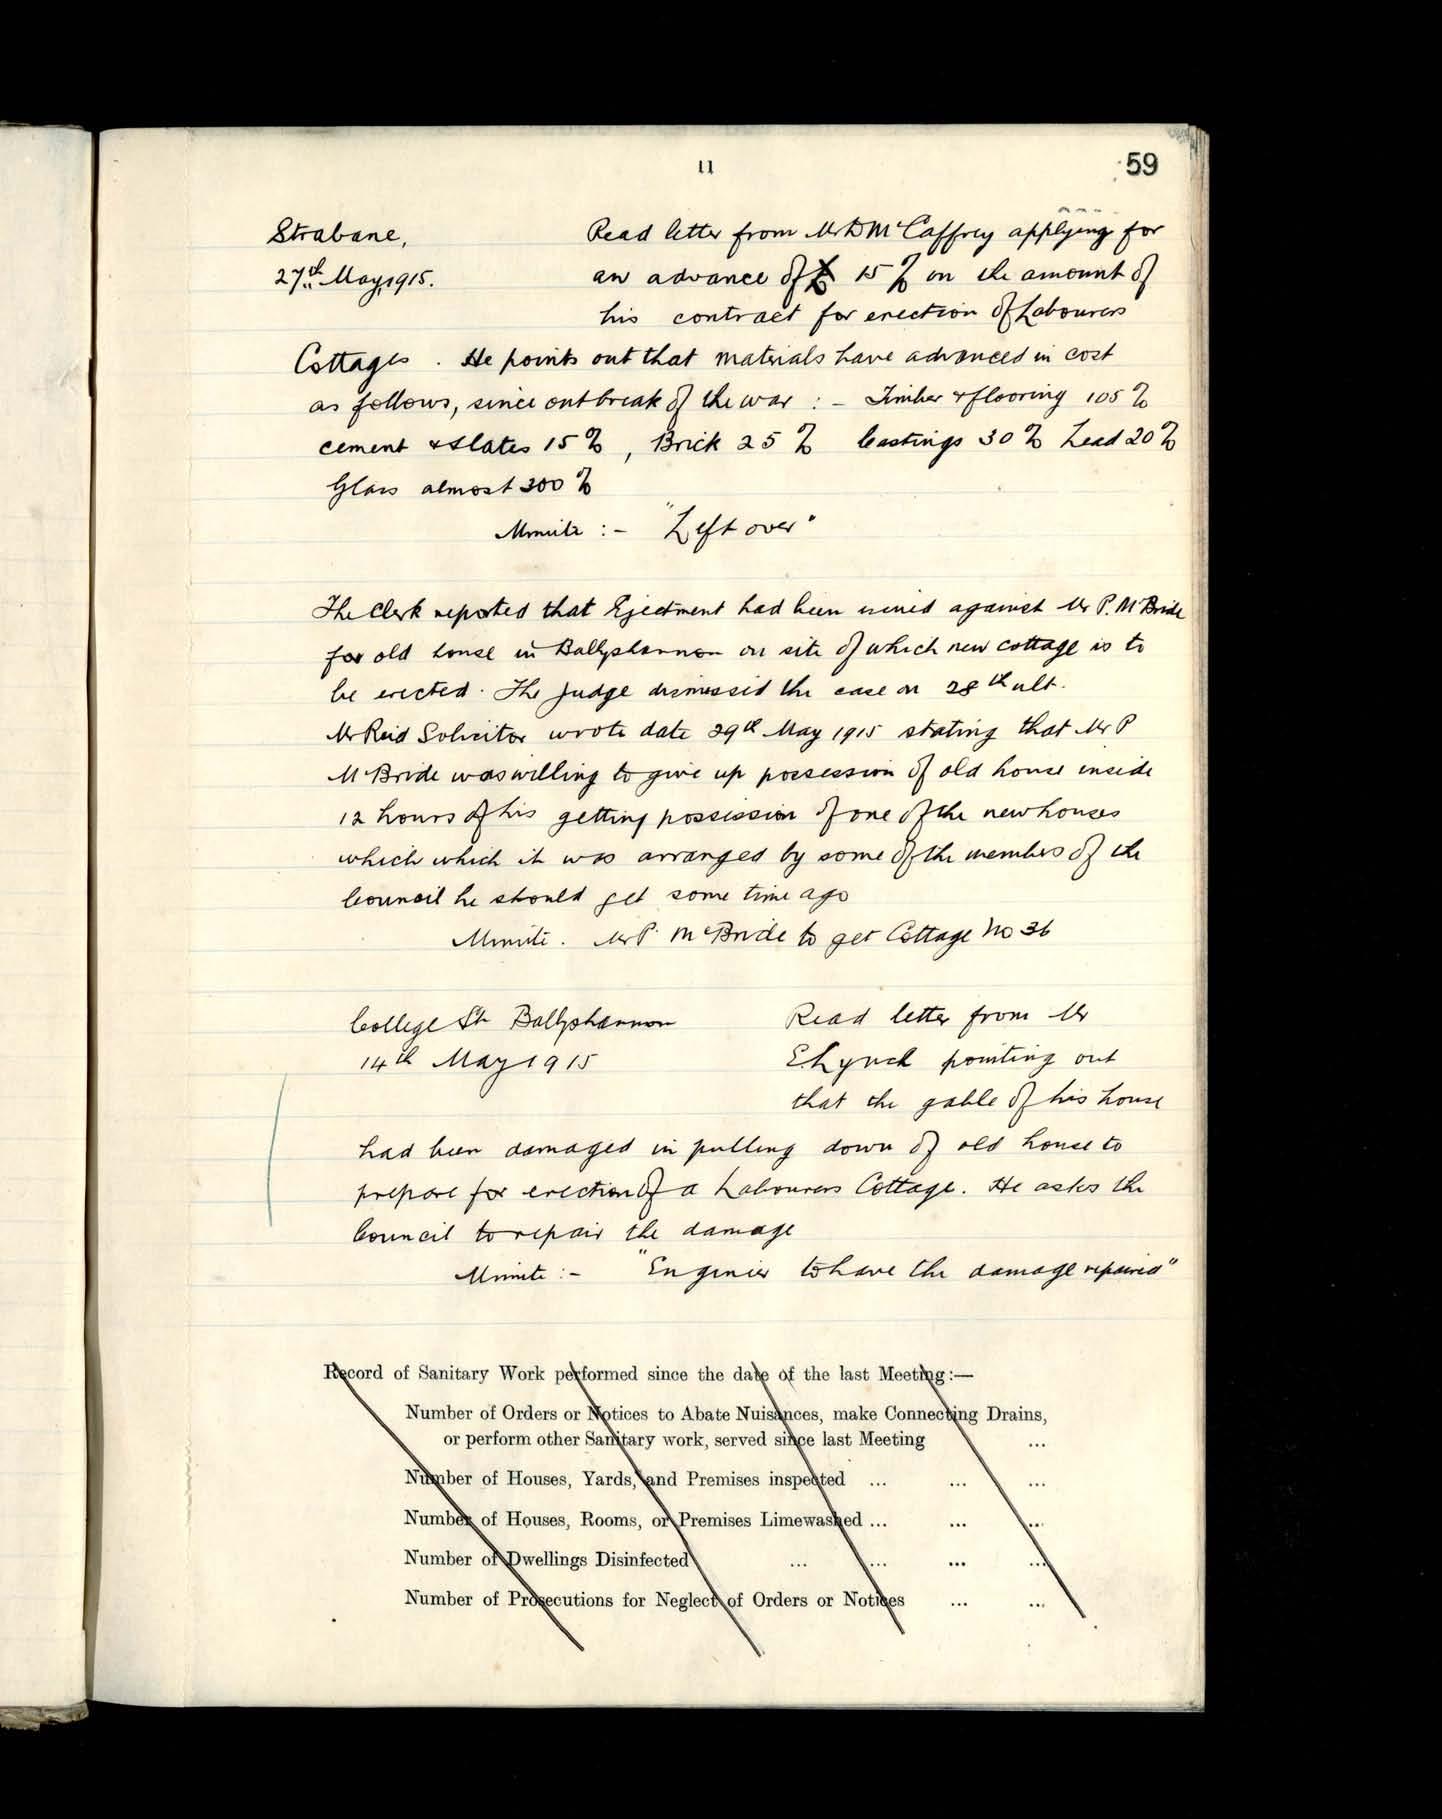 11
59
Strabane,
27th May, 1915.
Read letter from Mr D McCaffrey applying for
an advance of £ 15 % on the amount of
his contract for erection of Labourers
Cottages. He points out that materials have advanced in cost
as follows, since outbreak of the war :- Timber & flooring 105 %
cement & slates 15 %, Brick 25 % Castings 30 % Lead 20 %
Glass almost 300 %
Minute :- "Left over"
The Clerk reported that Ejectment had been issued against Mr P. McBride
for old house in Ballyshannon on site of which new cottage is to
be erected. The Judge dismissed the case on 28th ult.
Mr Reid Solicitor wrote date 29th May 1915 stating that Mr P
McBride was willing to give up possession of old house inside
12 hours of his getting possession of one of the new houses
which which it was arranged by some of the members of the
Council he should get some time ago
Minute. Mr P McBride to get Cottage No 36
College St Ballyshannon
14th May 1915
Read letter from Mr
E. Lynch pointing out
that the gable of his house
had been damaged in pulling down of old house to
prepare for erection of a Labourers Cottage. He asks the
Council to repair the damage
Minute :- "Engineer to have the damage repaired"
Record of Sanitary Work performed since the date of the last Meeting:—
Number of Orders or Notices to Abate Nuisances, make Connecting Drains,
or perform other Sanitary work, served since last Meeting ...
Number of Houses, Yards, and Premises inspected ... ... ...
Number of Houses, Rooms, or Premises Limewashed ... ... ...
Number of Dwellings Disinfected ... ... ... ...
Number of Prosecutions for Neglect of Orders or Notices ... ...